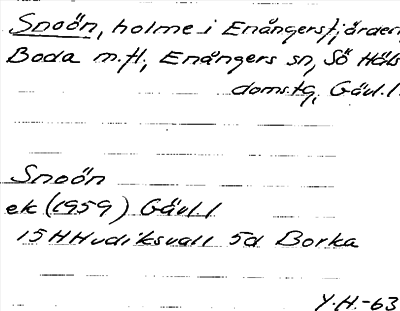 Snoön, holme i Enångersfjärden,
Boda m.fl., Enångers sn, Sö Häls
domstg, Gävl. l.
Snoön
ek (1959) Gävl. l
15H Hudiksvall 5d Borka
Y.H.-63